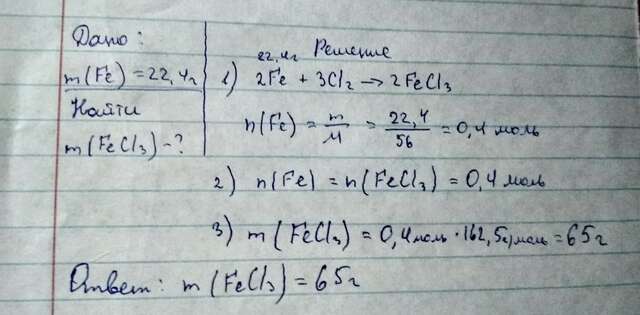 Дано:
m(Fe) = 22,4г
Найти
m(FeCl3) - ?
Решение
22,4г
1) 2Fe + 3Cl2 → 2FeCl3
n(Fe) = m/M = 22,4/56 = 0,4 моль
2) n(Fe) = n(FeCl3) = 0,4 моль
3) m(FeCl3) = 0,4моль · 162,5г/моль = 65г
Ответ: m(FeCl3) = 65г